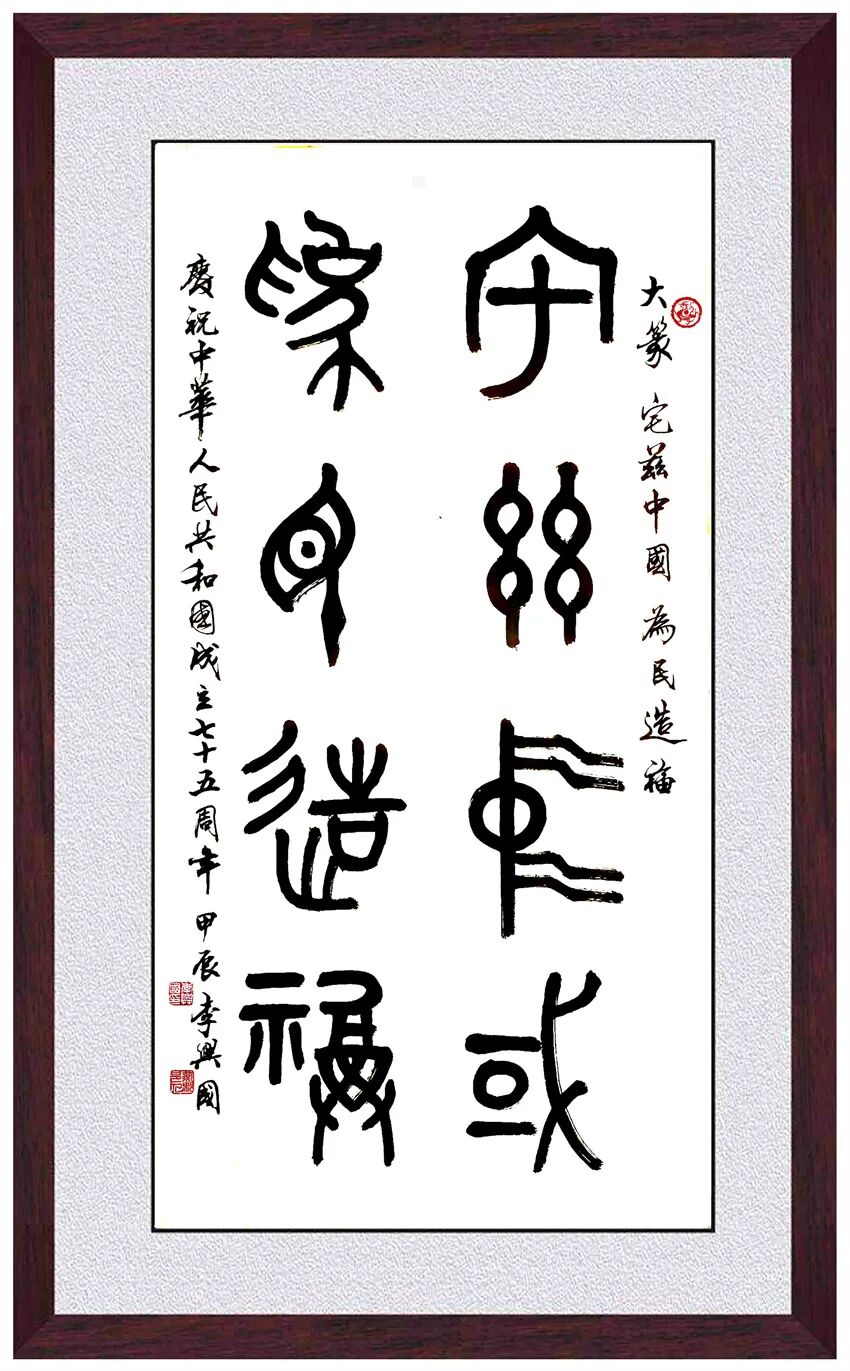 大篆 宅茲中國 為民造福
宅茲中或
為民造福
慶祝中華人民共和國成立七十五周年 甲辰 李興國